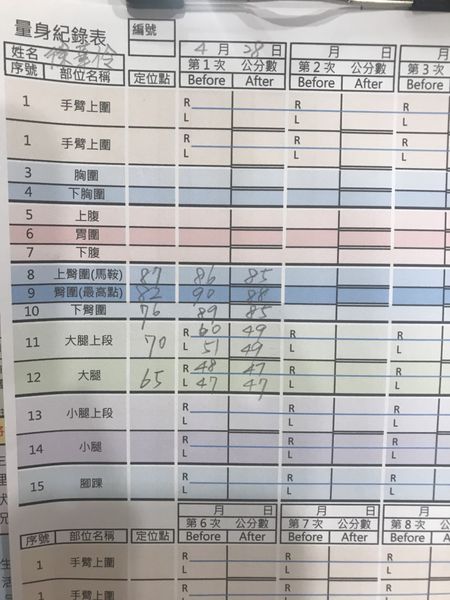 量身紀錄表 編號
姓名 4 月 28 日 月 日 月
序號 部位名稱 定位點 第1次 公分數 第2次 公分數 第3次
Before After Before After Before
1 手臂上圍 R R R
L L L
1 手臂上圍 R R R
L L L
3 胸圍
4 下胸圍
5 上腹
6 胃圍
7 下腹
8 上臀圍(馬鞍) 87 86 85
9 臀圍(最高點) 82 90 88
10 下臀圍 76 89 85
11 大腿上段 70 R 60 49 R R
L 51 49 L L
12 大腿 65 R 48 47 R R
L 47 47 L L
13 小腿上段 R R R
L L L
14 小腿 R R R
L L L
15 腳踝 R R R
L L L
月 日 月 日 月
序號 部位名稱 定位點 第6次 公分數 第7次 公分數 第8次
Before After Before After Before
1 手臂上圍 R R R
L L L
1 手臂上圍 R R R
L L